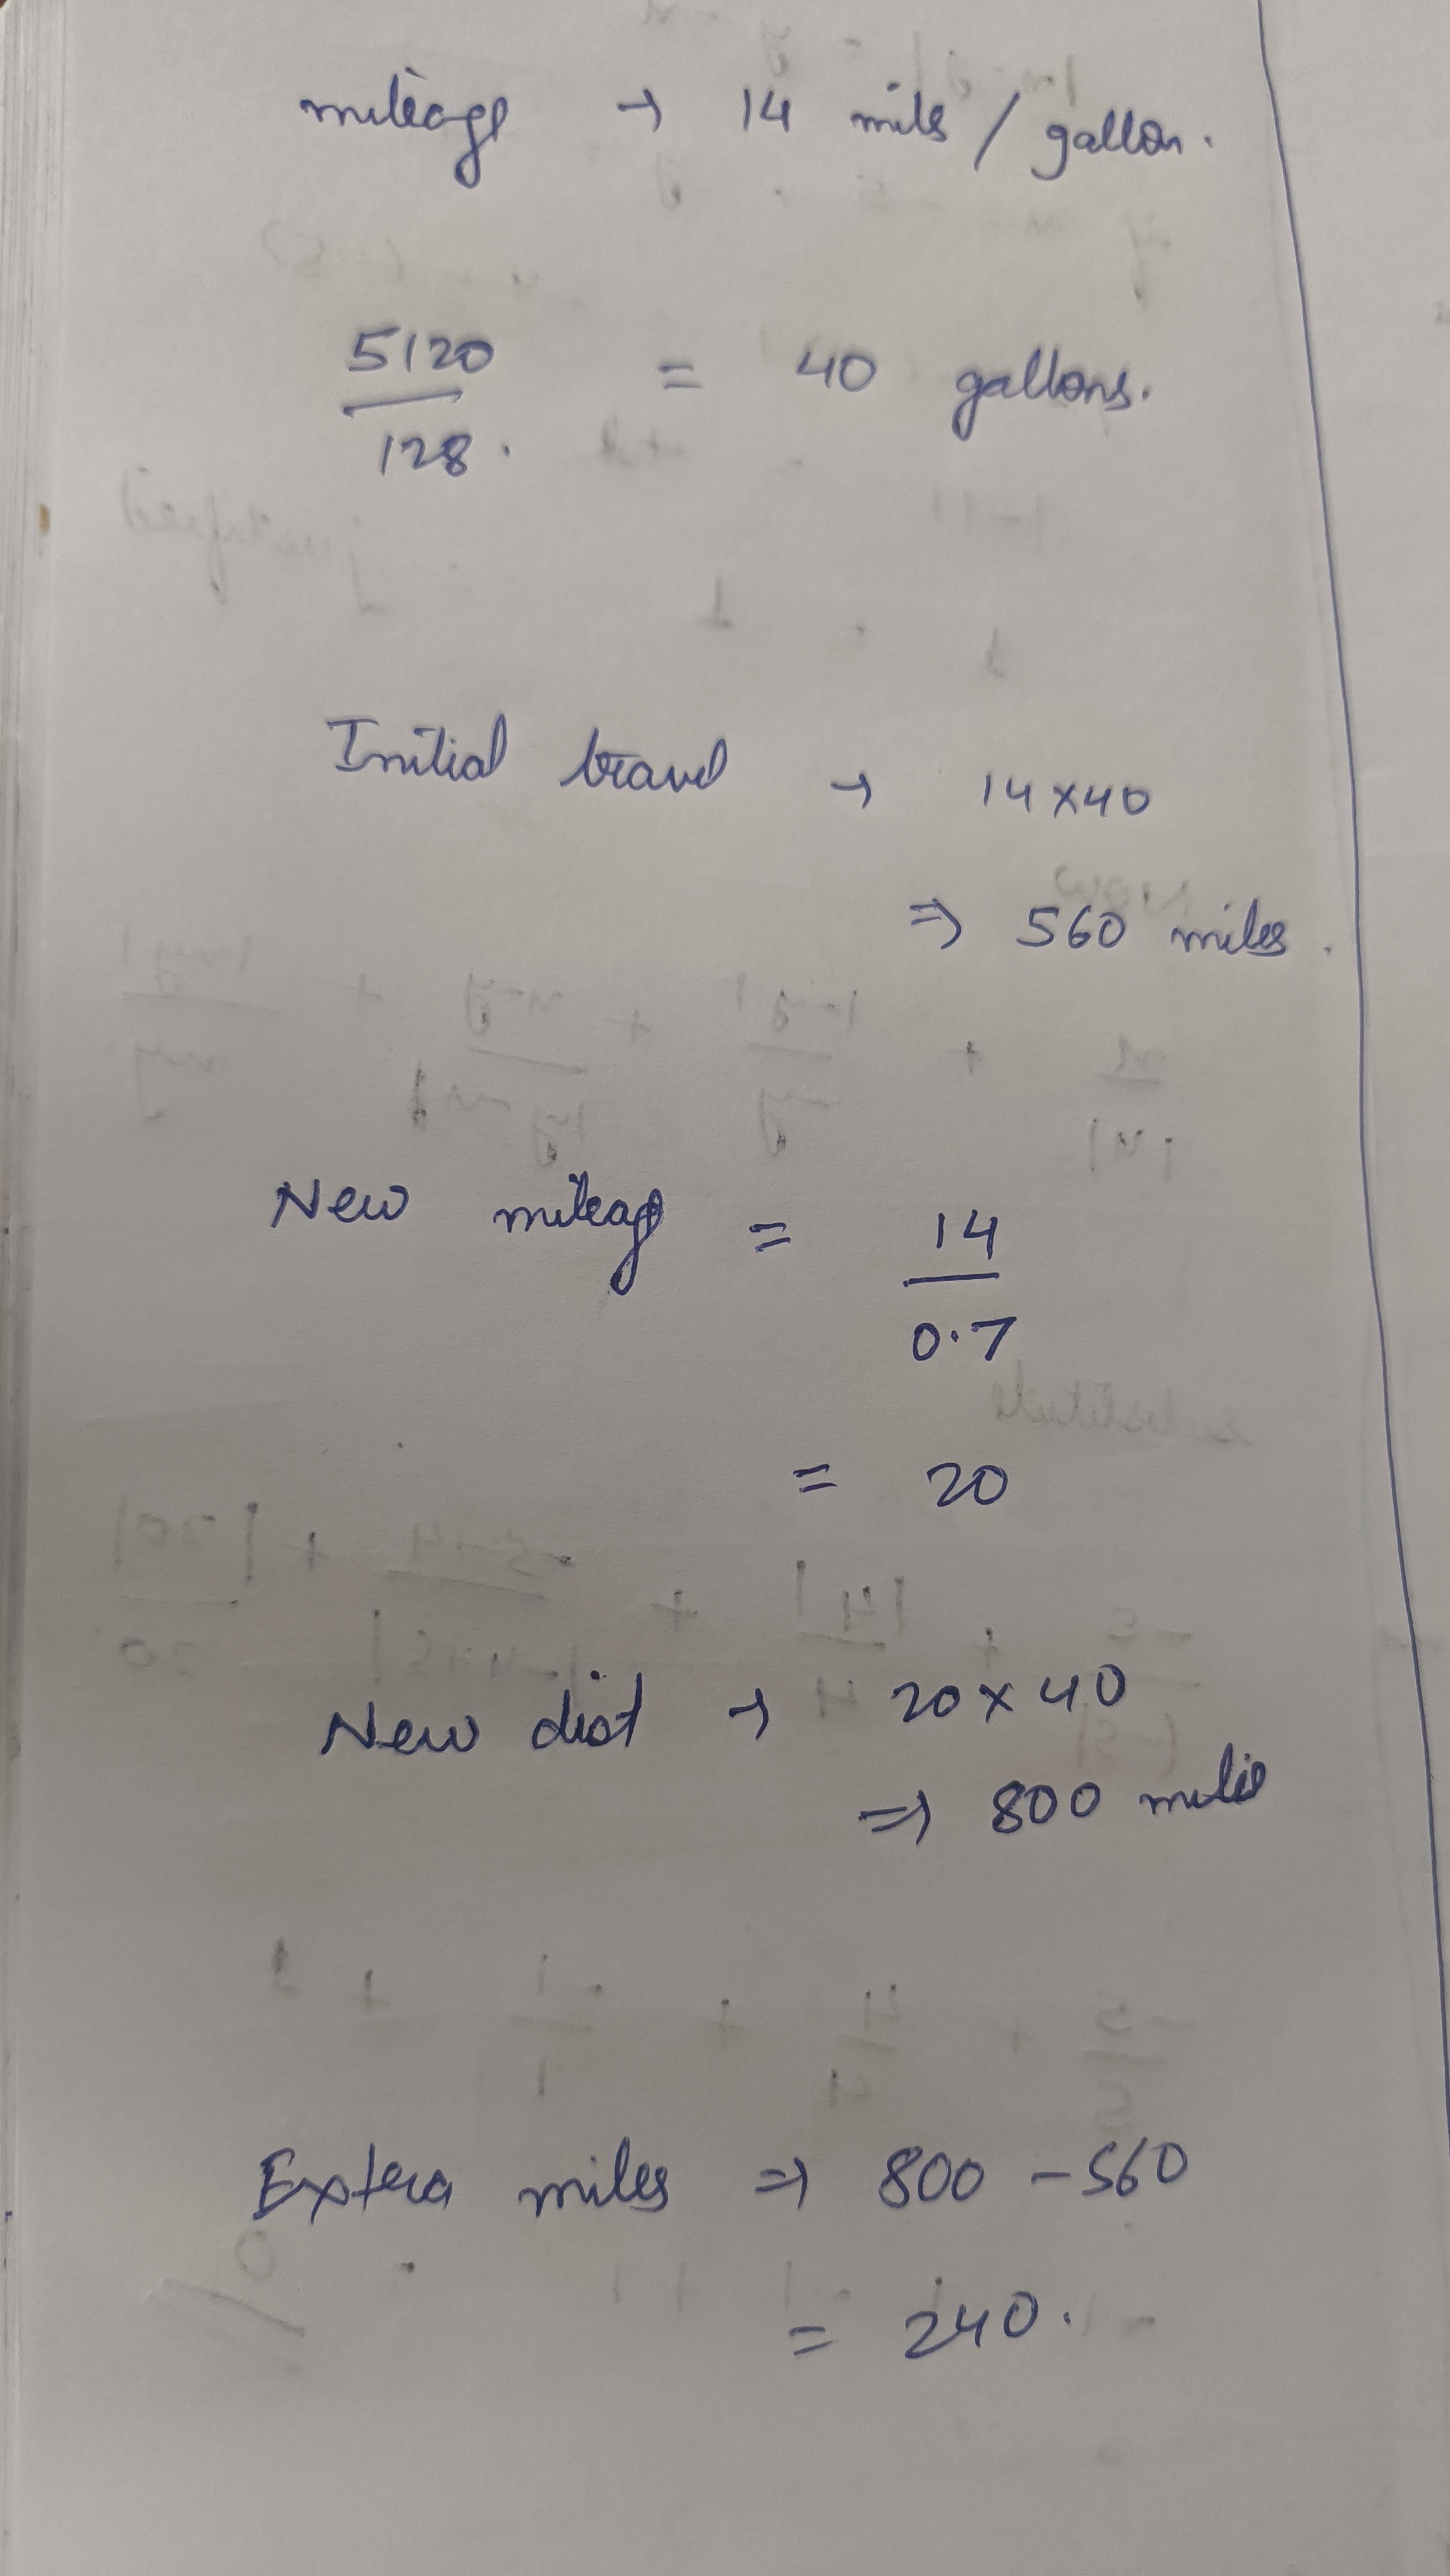 mileage → 14 miles / gallon.
5120
128.
= 40 gallons.
Initial travel → 14 × 40
⇒ 560 miles.
New mileage = 14
0.7
= 20
New dist → 20 × 40
⇒ 800 miles
Extra miles ⇒ 800 - 560
= 240.